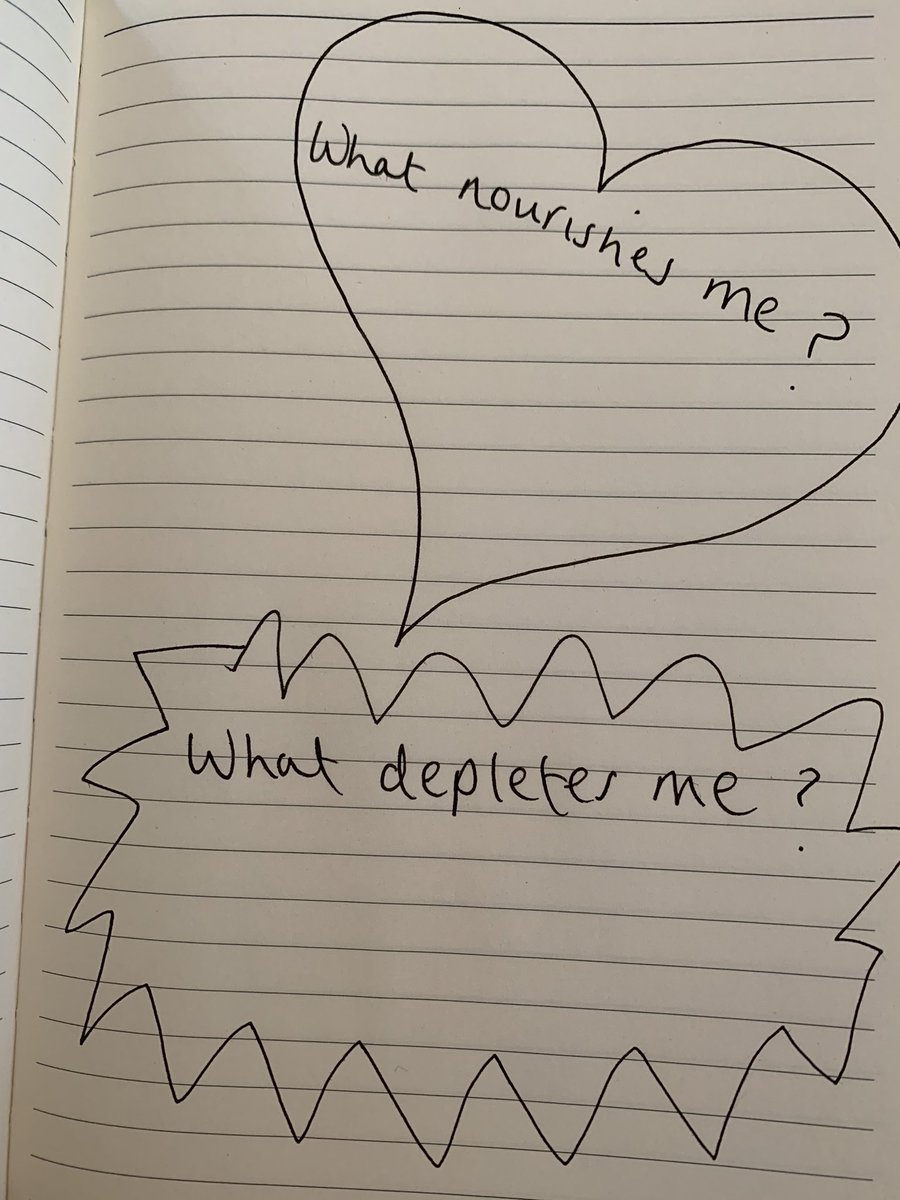 What nourishes me?
What depletes me?